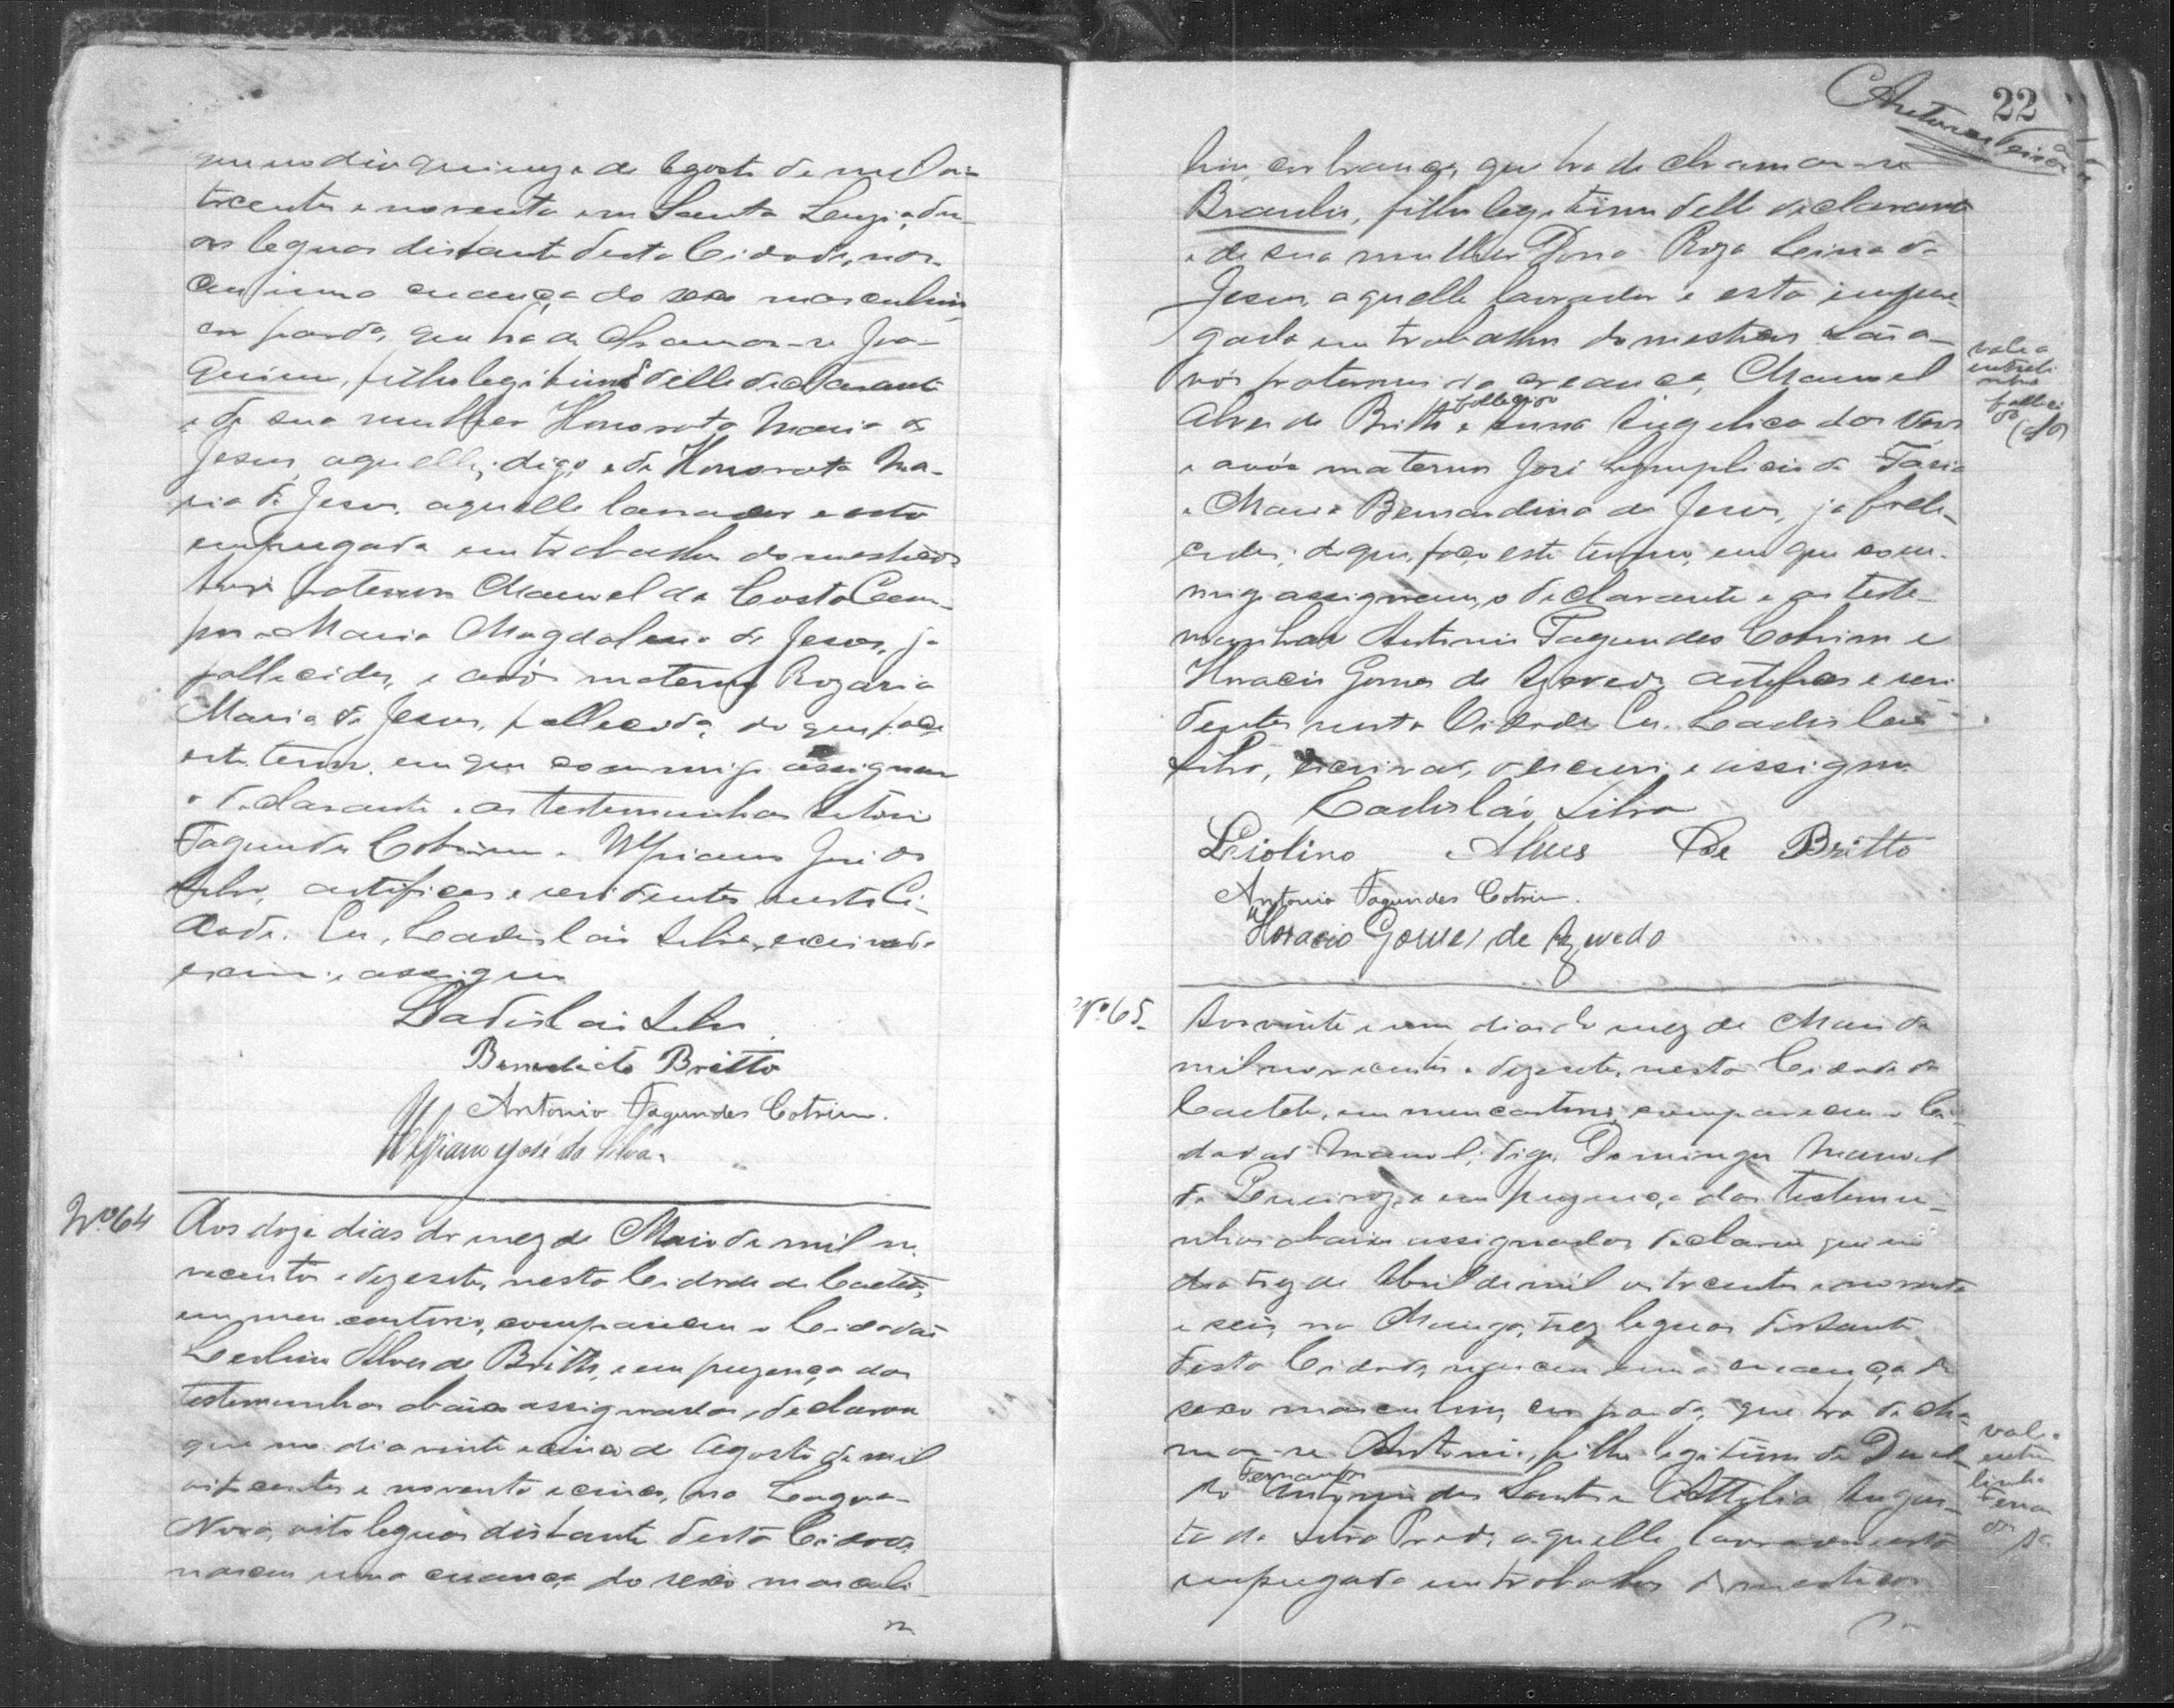 que no dia quinze de Agosto de mil oi-
trecentos e noventa em Santa Luzia, du-
as leguas distante desta Cidade, nas-
ceu uma creança do sexo masculino,
cor parda, que ha de chamar-se Joa-
quim, filho legitimo delle declarante
e de sua mulher Honorata Maria de
Jesus, aquelle, digo, e de Honorata Ma-
ria de Jesus, aquelle lavrador e esta
empregada em trabalhos domesticos
avós paternos Manoel da Costa Cam-
pos e Maria Magdalena de Jesus, já
fallecidos, e avó materna Rozaria
Maria de Jesus, fallecida, do que faço
este termo, em que commigo assignam
o declarante e as testemunhas Antonio
Fagundes Cotrim e Ulpiano José da
Silva, artifices e residentes nesta Ci-
dade. Eu, Ladisláo Silva, escrivão,
escrevi e assigno
Ladisláo Silva
Benedicto Britto
Antonio Fagundes Cotrim.
Ulpiano José da Silva.
Nº 64 Aos doze dias do mez de Maio de mil no-
vecentos e dezesete, nesta Cidade de Caeteté,
em meu cartorio, compareceu o Cidadão
Alves de Britto, e em prezença das
testemunhas abaixo assignadas, declarou
que no dia vinte e cinco de Agosto de mil
oitocentos e noventa e cinco, na Lagoa-
Nova, oito leguas distante desta Cidade
nasceu uma creança do sexo masculi-
n
22
Antonio
lino, cor branca, que ha de chamar-se
Braulio, filho legitimo delle declarante
e de sua mulher Dona Roza Leina de
Jesus, aquelle lavrador e esta empre-
gada em trabalhos domesticos. São a-
vós paternos da creança, Manoel
Alves de Britto fallecido e Anna Angelica das Virgens
e avós maternos José Simplicio de Faria
e Maria Bernardina de Jesus, já falle-
cidos; do que, faço este termo, em que com-
migo assignam, o declarante e as teste-
munhas Antonio Fagundes Cotrim e
Horacio Gomes de Azevedo, artifices e resi-
dentes nesta Cidade. Eu, Ladislau
Silva, escrivão, o escrevi e assigno
Ladisláo Silva
Liolino Alves De Britto
Antonio Fagundes Cotrim.
Horacio Gomes de Azevedo
vale a
entreli-
nha
falleci-
do
Nº 65. Aos vinte e um dias do mez de Maio de
mil novecentos e dezesete, nesta Cidade de
Caeteté, em meu cartorio, compareceu o Ci-
dadão Manoel, digo, Domingos Manoel
de e em prezença das testemu-
nhas abaixo assignadas, declarou que no
dia trez de Abril de mil oitocentos e noventa
e seis, na Manga, trez leguas distante
desta Cidade, nasceu uma creança do
sexo masculino, cor parda, que ha de cha-
mar-se Antonio, filho legitimo de
Fernandes Antonio dos Santos e Ottilia Augus-
ta da Silva Prado, aquelle lavrador e esta
empregada em trabalhos domesticos
vale a
entre
linha
Fernan
des